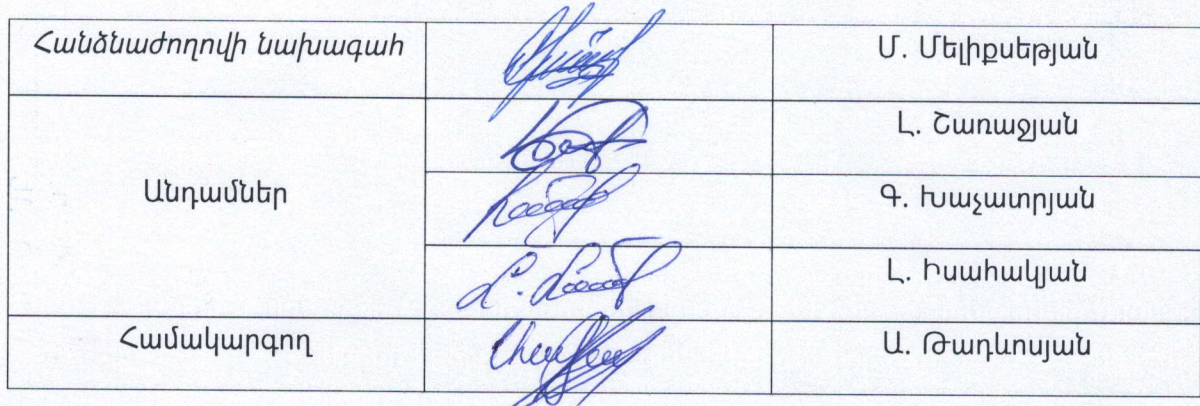 Հանձնաժողովի նախագահ
Մ. Մելիքսեթյան
Լ. Շառաջյան
Անդամներ
Գ. Խաչատրյան
Լ. Իսահակյան
Համակարգող
Ա. Թադևոսյան